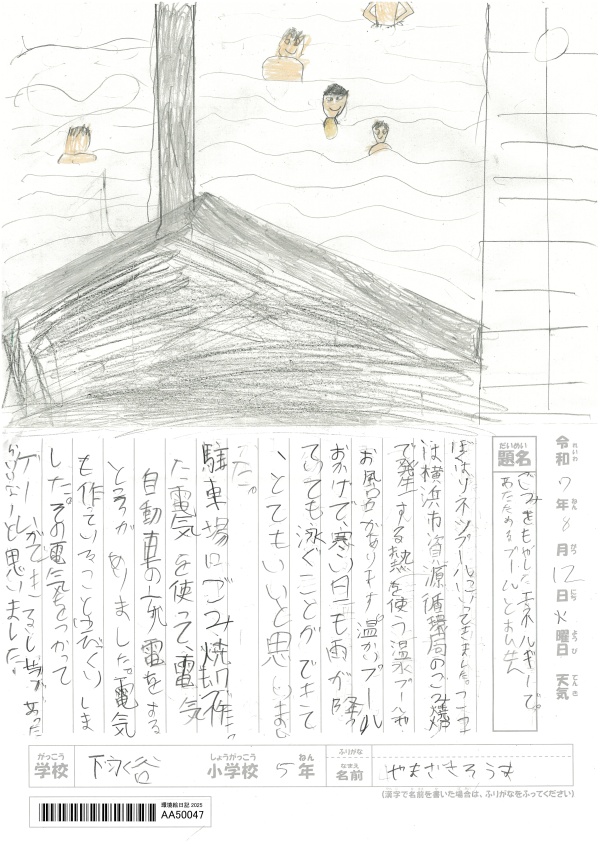 令和7年8月12日火曜日 天気
れいわ ねん がつ にち ようび てんき
だいめい
題名
ごみをもやしたエネルギーで
あたためるプールとおんせん
ぼくはリネツプールにいってきました。ここ
は横浜市資源循環局のごみ
で発生する熱を使う温水プールや
お風呂があります。温かいプール
おかげで、寒い日も雨が降っ
ていても泳ぐことができて
とてもいいと思いまし
た。
駐車場にごみ焼却
た電気を使って、電気
自動車の充電をする
ところがありました。電気
も作っていることにびっくりしま
した。その電気をつかって
ゲームができる あった
らいいなーと思いました。
がっこう しょうがっこう ねん ふりがな
学校 下永谷 小学校 5年 なまえ 名前 やまさきそうま
(漢字で名前を書いた場合は、ふりがなをふってください)
環境絵日記 2025
AA50047